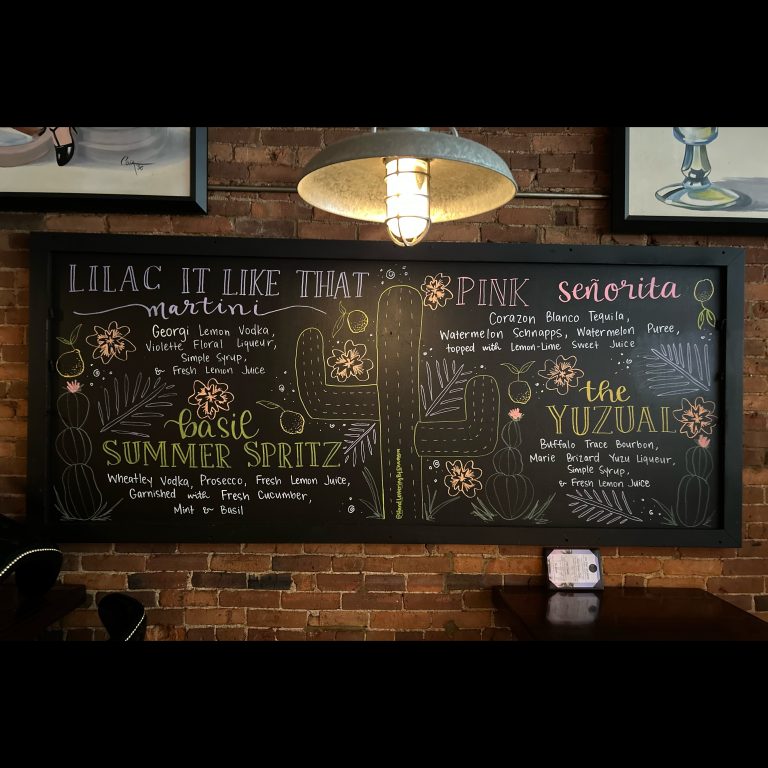 LILAC IT LIKE THAT
martini
Georgi Lemon Vodka,
Violette Floral Liqueur,
Simple Syrup,
& Fresh Lemon Juice
basil
SUMMER SPRITZ
Wheatley Vodka, Prosecco, Fresh Lemon Juice,
Garnished with Fresh Cucumber,
Mint & Basil
PINK señorita
Corazon Blanco Tequila,
Watermelon Schnapps, Watermelon Puree,
topped with Lemon-Lime Sweet Juice
the
YUZUAL
Buffalo Trace Bourbon,
Marie Brizard Yuzu Liqueur,
Simple Syrup,
& Fresh Lemon Juice